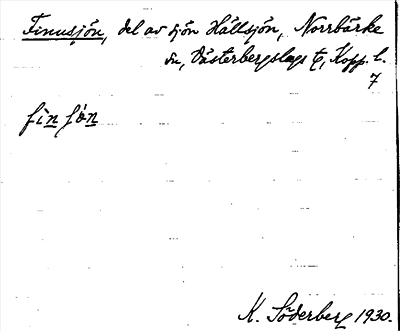 Finnsjön, del av sjön Hällsjön, Norrbärke
sn, Västerbergslags t, Kopp. l.
7
fìn ʃön
K. Söderberg 1930.